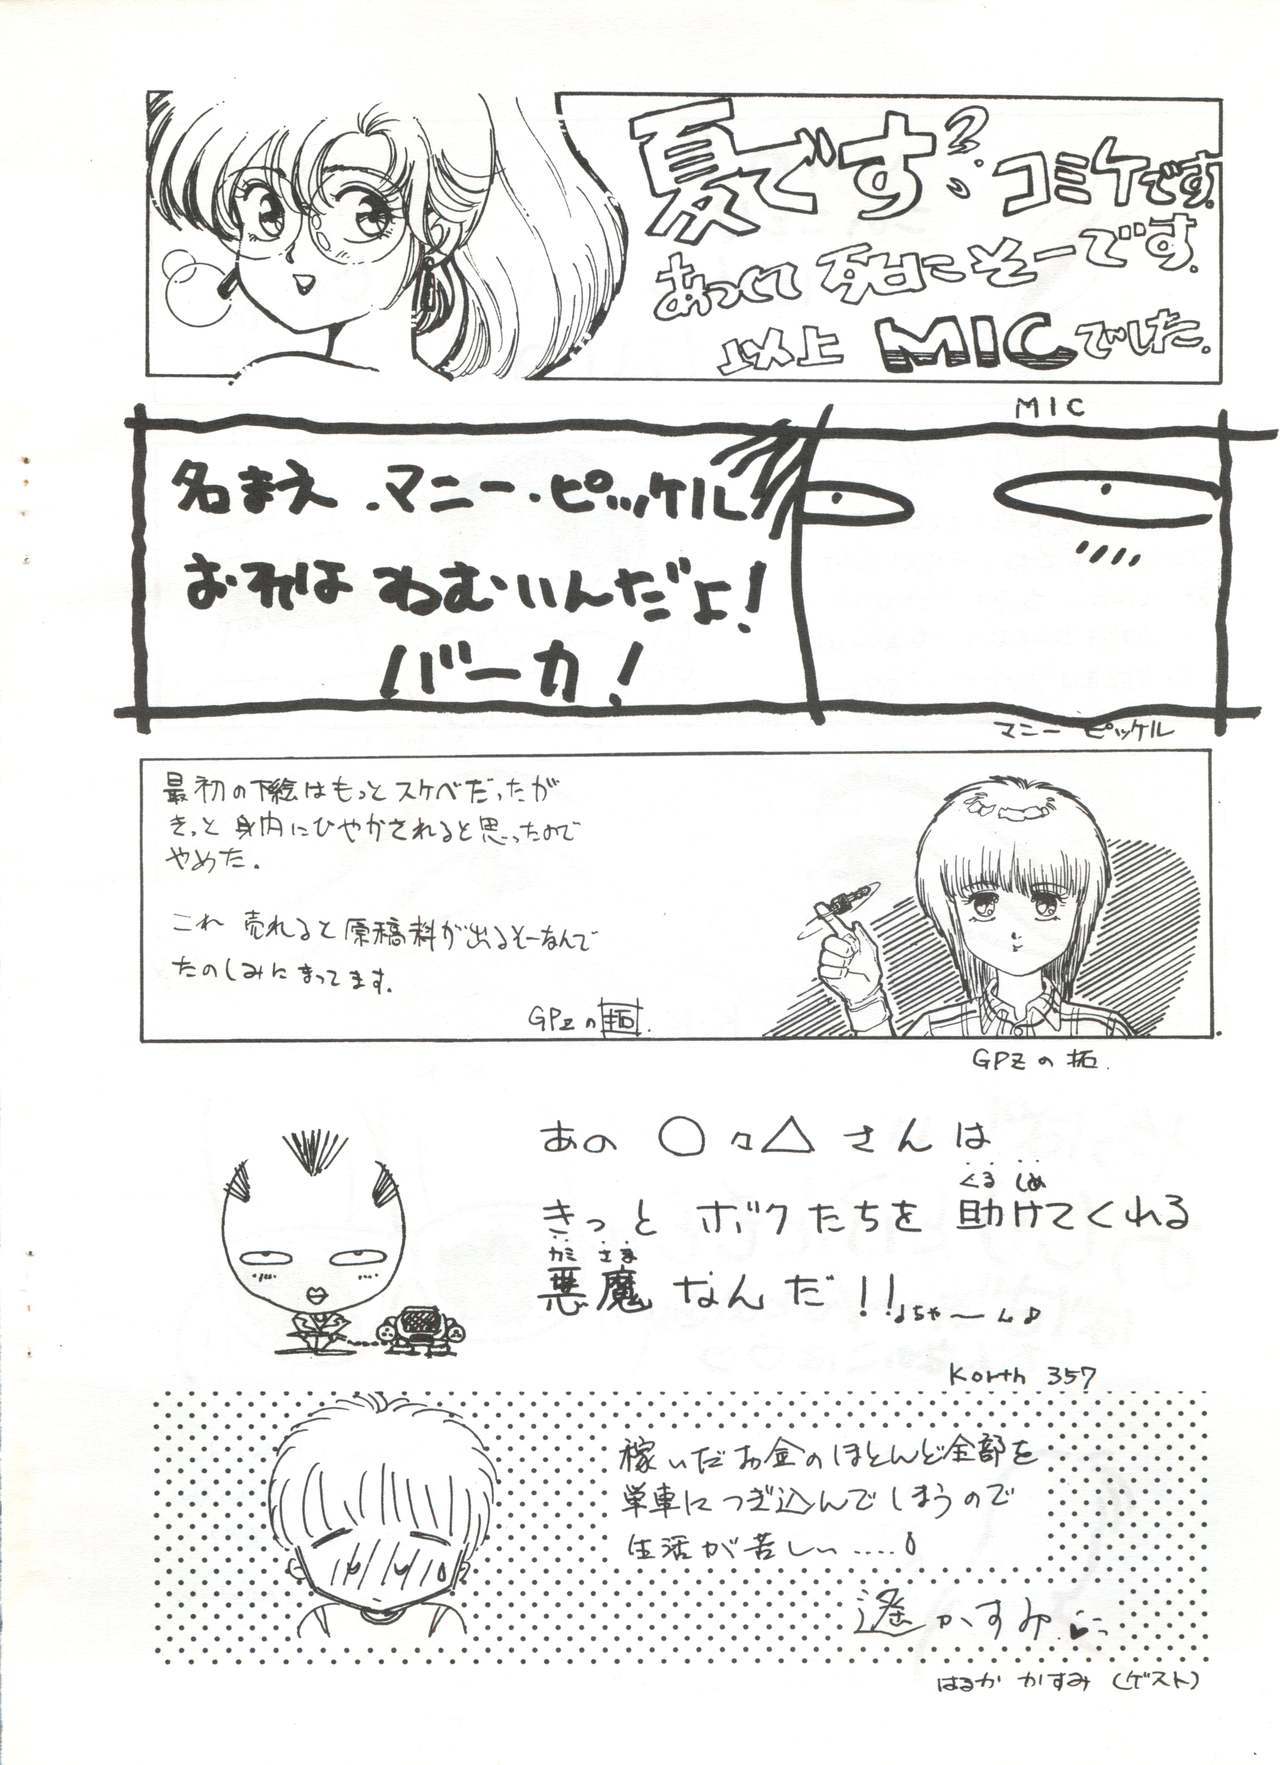 夏です。コミケです。
あつくて死にそーです。
以上MICでした。
MIC
名まえ．マニー・ピッケル
おれはねむいんだよ！
バーカ！
マニー ピッケル
最初の下絵はもっとスケベだったが
きっと身内にひやかされると思ったので
やめた．
これ売れると原稿料が出るそーなんで
たのしみにまってます.
GPzの拓.
GPZの拓.
あの○々△さんは
きっとボクたちを助けてくれる
くるしめ
悪魔なんだ！！
かみさま
Korth 357
稼いだお金のほとんど全部を
単車につぎ込んでしまうので
生活が苦しい.....
遙かすみ
はるか かすみ（ゲスト）